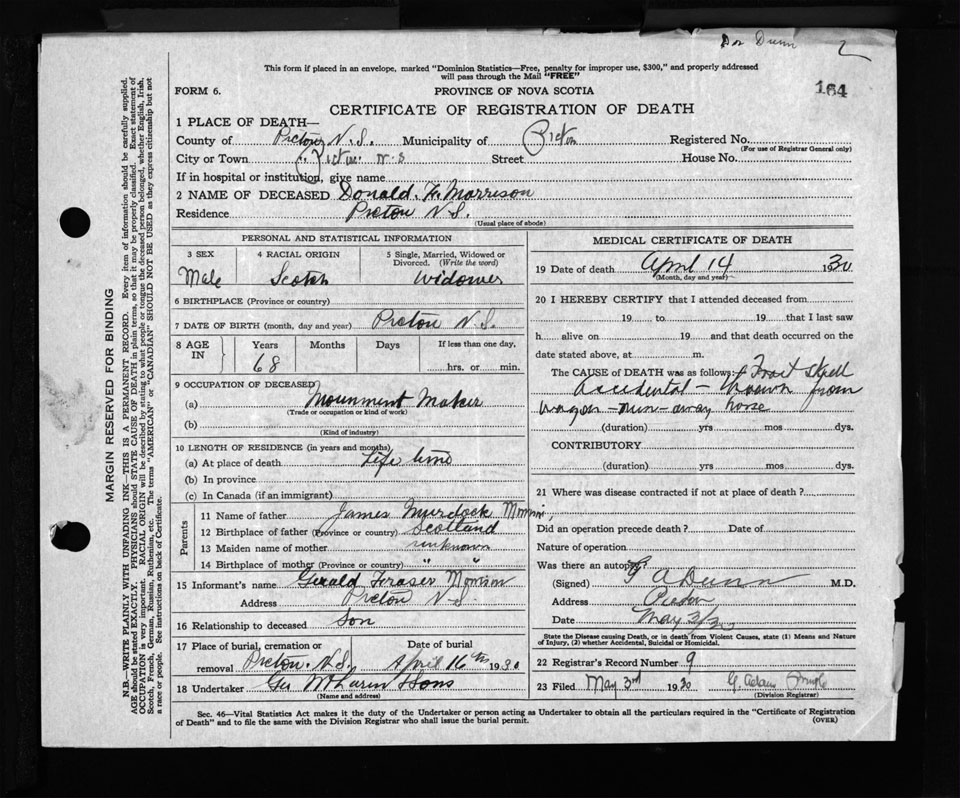 Dor Dunn 2
This form if placed in an envelope, marked "Dominion Statistics—Free, penalty for improper use, $300," and properly addressed
will pass through the Mail "FREE"
164
FORM 6. PROVINCE OF NOVA SCOTIA
CERTIFICATE OF REGISTRATION OF DEATH
1 PLACE OF DEATH—
County of Pictou N.S. Municipality of Pictou Registered No.
(For use of Registrar General only)
City or Town Pictou N S Street House No.
If in hospital or institution, give name
2 NAME OF DECEASED Donald. H. Morrison
Residence Pictou N S.
(Usual place of abode)
PERSONAL AND STATISTICAL INFORMATION
3 SEX 4 RACIAL ORIGIN 5 Single, Married, Widowed or
Divorced. (Write the word)
Male Scotch Widower
6 BIRTHPLACE (Province or country)
7 DATE OF BIRTH (month, day and year) Pictou N.S.
8 AGE IN Years Months Days If less than one day,
68 hrs. or min.
9 OCCUPATION OF DECEASED
(a) Mounment Maker
(Trade or occupation or kind of work)
(b)
(Kind of industry)
10 LENGTH OF RESIDENCE (in years and months)
(a) At place of death Life time
(b) In province
(c) In Canada (if an immigrant)
Parents
11 Name of father James Murdock Morrison,
12 Birthplace of father (Province or country) Scotland
13 Maiden name of mother unknown
14 Birthplace of mother (Province or country) " "
15 Informant's name Gerald Fraser Morrison
Address Pictou N S.
16 Relationship to deceased Son
17 Place of burial, cremation or Date of burial
removal Pictou. N.S. April 16th 1930
18 Undertaker Geo McLaren & Sons
(Name and address)
MEDICAL CERTIFICATE OF DEATH
19 Date of death April 14 1930
(Month, day and year)
20 I HEREBY CERTIFY that I attended deceased from
19 to 19 that I last saw
h alive on 19 and that death occurred on the
date stated above, at m.
The CAUSE OF DEATH was as follows: Fract Skull
accidental - thrown from
wagon - run-away horse
(duration) yrs mos dys.
CONTRIBUTORY
(duration) yrs mos dys.
21 Where was disease contracted if not at place of death?
Did an operation precede death? Date of
Nature of operation
Was there an autopsy?
(Signed) G A Dunn M.D.
Address Pictou
Date May 3/30
State the Disease causing Death, or in death from Violent Causes, state (1) Means and Nature
of Injury, (2) whether Accidental, Suicidal or Homicidal.
22 Registrar's Record Number 9
23 Filed May 3rd 1930 G. Adam
(Division Registrar)
Sec. 46—Vital Statistics Act makes it the duty of the Undertaker or person acting as Undertaker to obtain all the particulars required in the "Certificate of Registration
of Death" and to file the same with the Division Registrar who shall issue the burial permit.
(OVER)
MARGIN RESERVED FOR BINDING
N.B.—WRITE PLAINLY WITH UNFADING INK—THIS IS A PERMANENT RECORD. Every item of information should be carefully supplied.
AGE should be stated EXACTLY. PHYSICIANS should STATE CAUSE OF DEATH in plain terms, so that it may be properly classified. Exact statement of
OCCUPATION is very important. RACIAL ORIGIN will be described by stating to what people or tongue the deceased person belonged, whether English, Irish,
Scotch, French, German, Russian, Ruthenian, etc. The terms "AMERICAN" or "CANADIAN" SHOULD NOT BE USED as they express citizenship but not
a race or people. See instructions on back of Certificate.